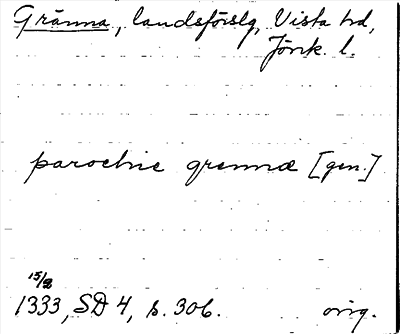 Gränna, landsförslg, Vista hd,
Jönk. l.
parochie grennæ [gen.]
15/8
1333, SD 4, s. 306. orig.